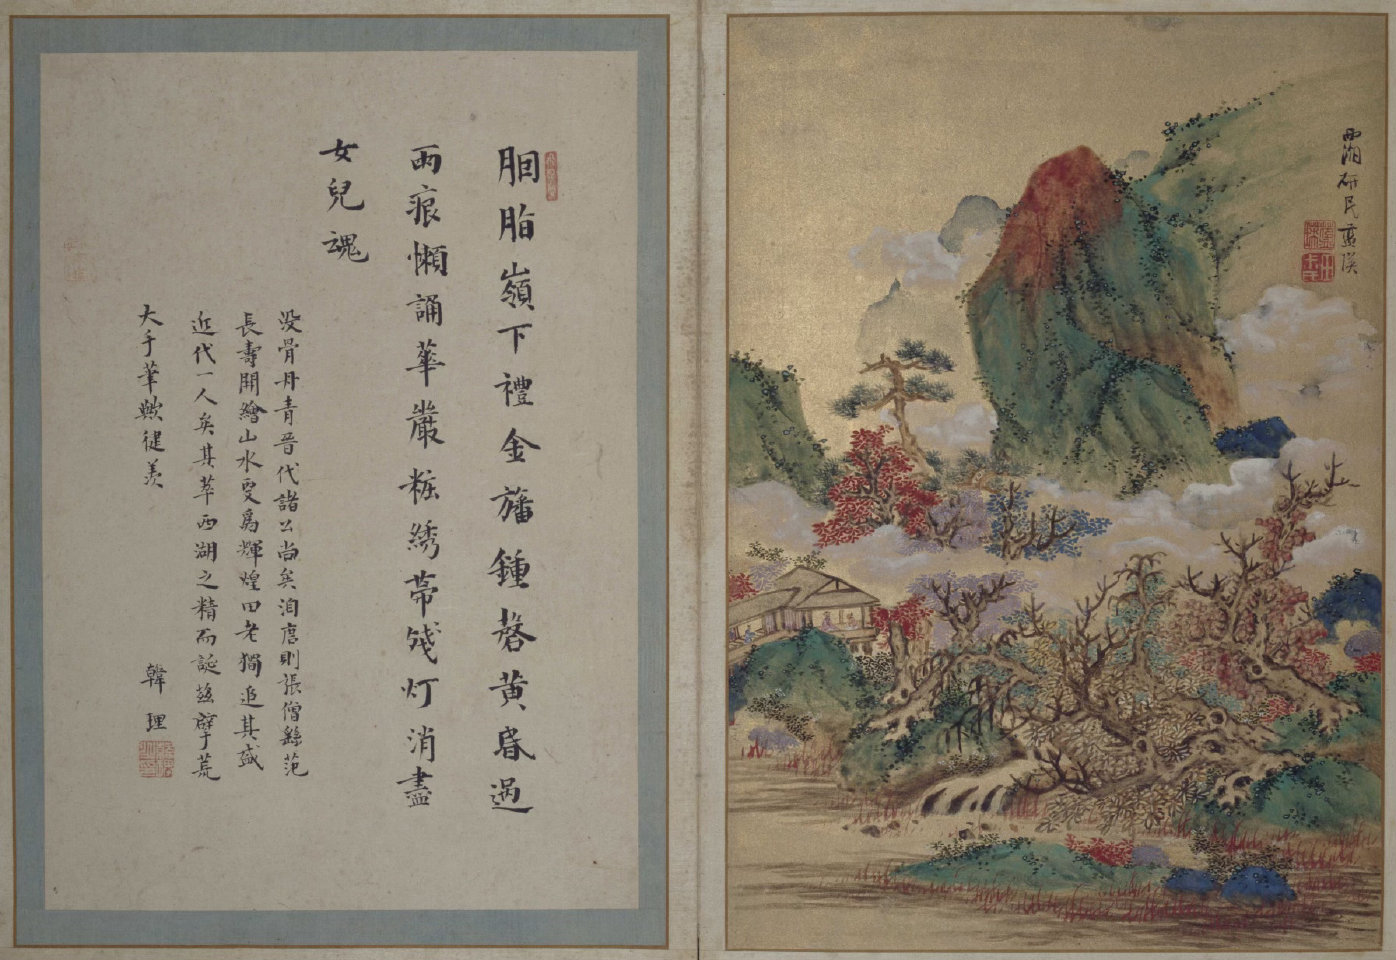 西湖研民藍瑛
胭脂嶺下禮金旛鍾磬黃昏過
雨痕懶誦華嚴粧綉帶残灯消盡
女兒魂
没骨丹青晉代諸公尚矣洎唐則張僧繇范
長壽開繪山水更為輝煌田老獨追其盛
近代一人矣其萃西湖之精而誕茲擘于荒
大手筆歟健羨
韓理